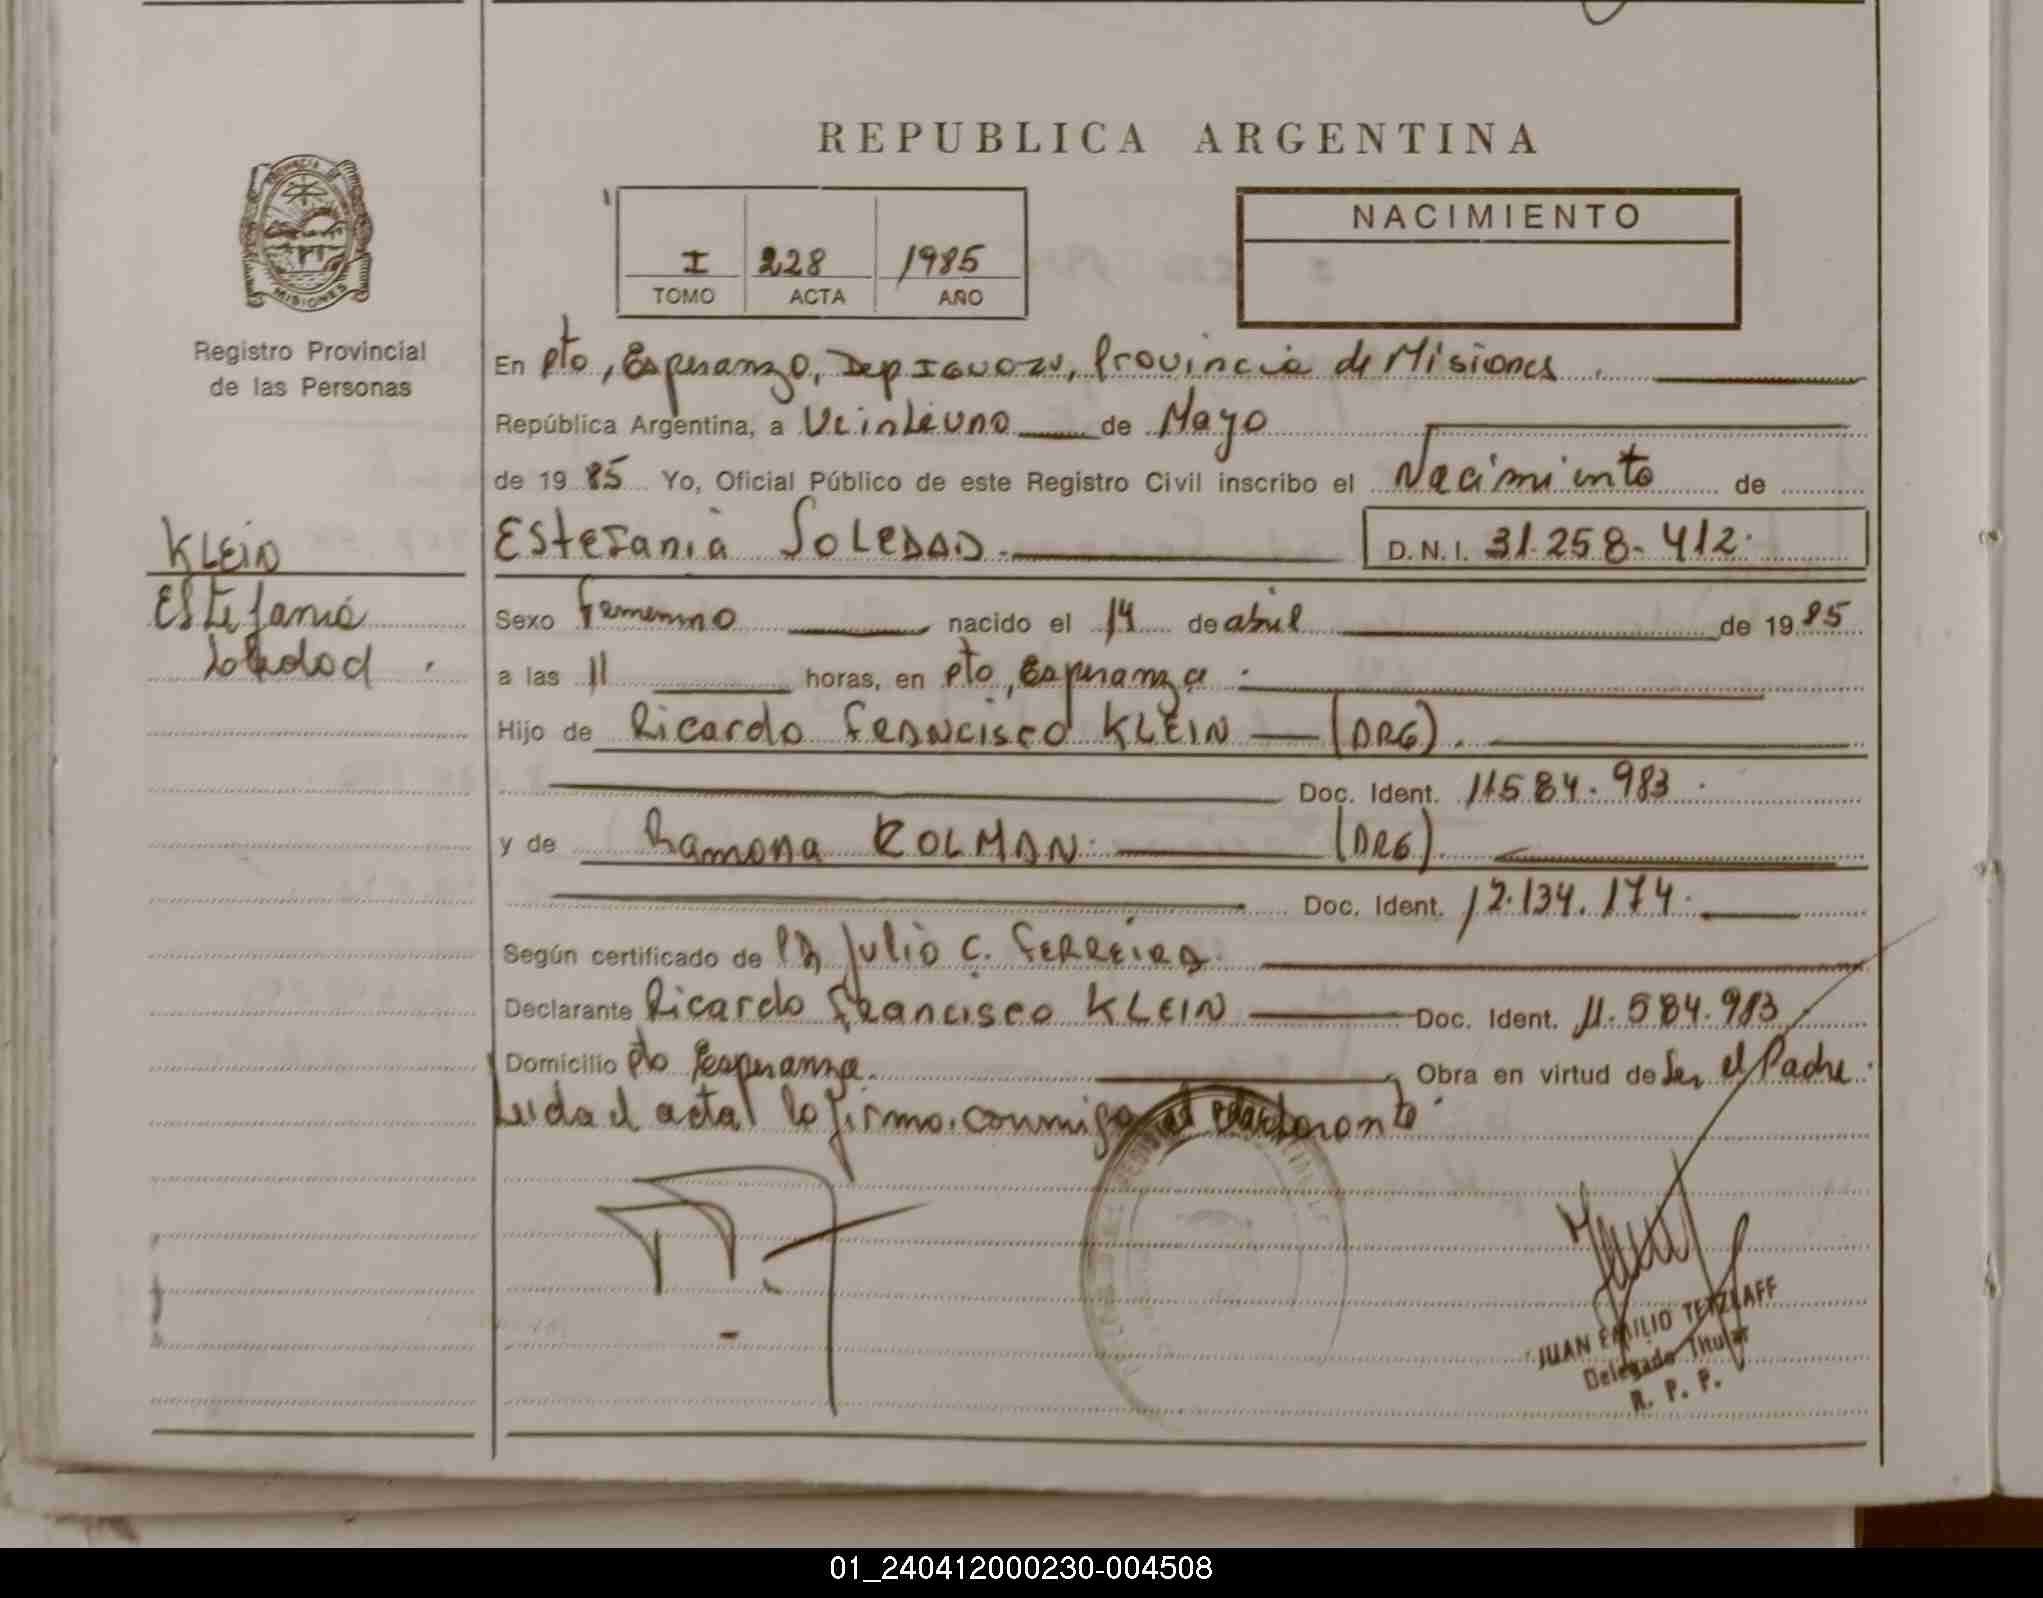 REPUBLICA ARGENTINA
PROVINCIA DE
MISIONES
Registro Provincial
de las Personas
I 228 1985
TOMO ACTA AÑO
NACIMIENTO
En Pto, Esperanza, Dep IGUAZU, Provincia de Misiones.
República Argentina, a Veintiuno de Mayo
de 19 85 Yo, Oficial Público de este Registro Civil inscribo el Nacimiento de
EStefania SOLEDAD. D.N.I. 31.258.412.
KLEIN
Estefania
Soledad.
Sexo Femenino nacido el 14 de abril de 19 85
a las 11 horas, en Pto, Esperanza.
Hijo de Ricardo FRANCISCO KLEIN (ARG).
Doc. Ident. 11584.983.
y de Ramona KOLMAN. (ARG).
Doc. Ident. 12.134.174.
Según certificado de Julio C. FERREIRA.
Declarante Ricardo Francisco KLEIN Doc. Ident. 11.584.983
Domicilio Pto Esperanza. Obra en virtud de Ser el Padre.
Leida el acta lo firma conmigo el declarante
JUAN EMILIO TETZLAFF
Delegado Titular
R. P. P.
01_240412000230-004508